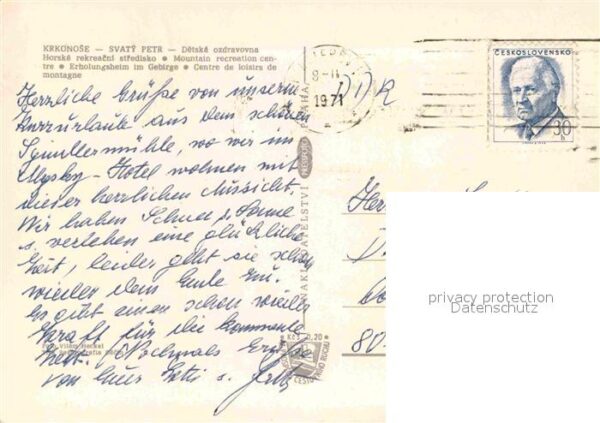 KRKONOŠE — SVATÝ PETR — Dětská ozdravovna
Horské rekreační středisko ● Mountain recreation cen-
tre ● Erholungsheim im Gebirge ● Centre de loisirs de
montagne
Herzliche Grüße von unserm
Kurzurlaube aus dem schönen
Spindlermühle, wo wir im
Hotel wohnen mit
dieser herrlichen Aussicht.
Wir haben Schnee u. Sonne
u. verleben eine glückliche
Zeit, leider geht sie schon
wieder dem Ende zu.
Es gibt einen schon wieder
Kraft für die kommende
Zeit. Nochmals Grüße
von Eurer u. Fritz
Foto Vilém Heckel
Kčs 0,20
NAKLADATELSTVÍ
PRAHA
8-11
1971
DDR
ČESKOSLOVENSKO
30
h
80
privacy protection
Datenschutz